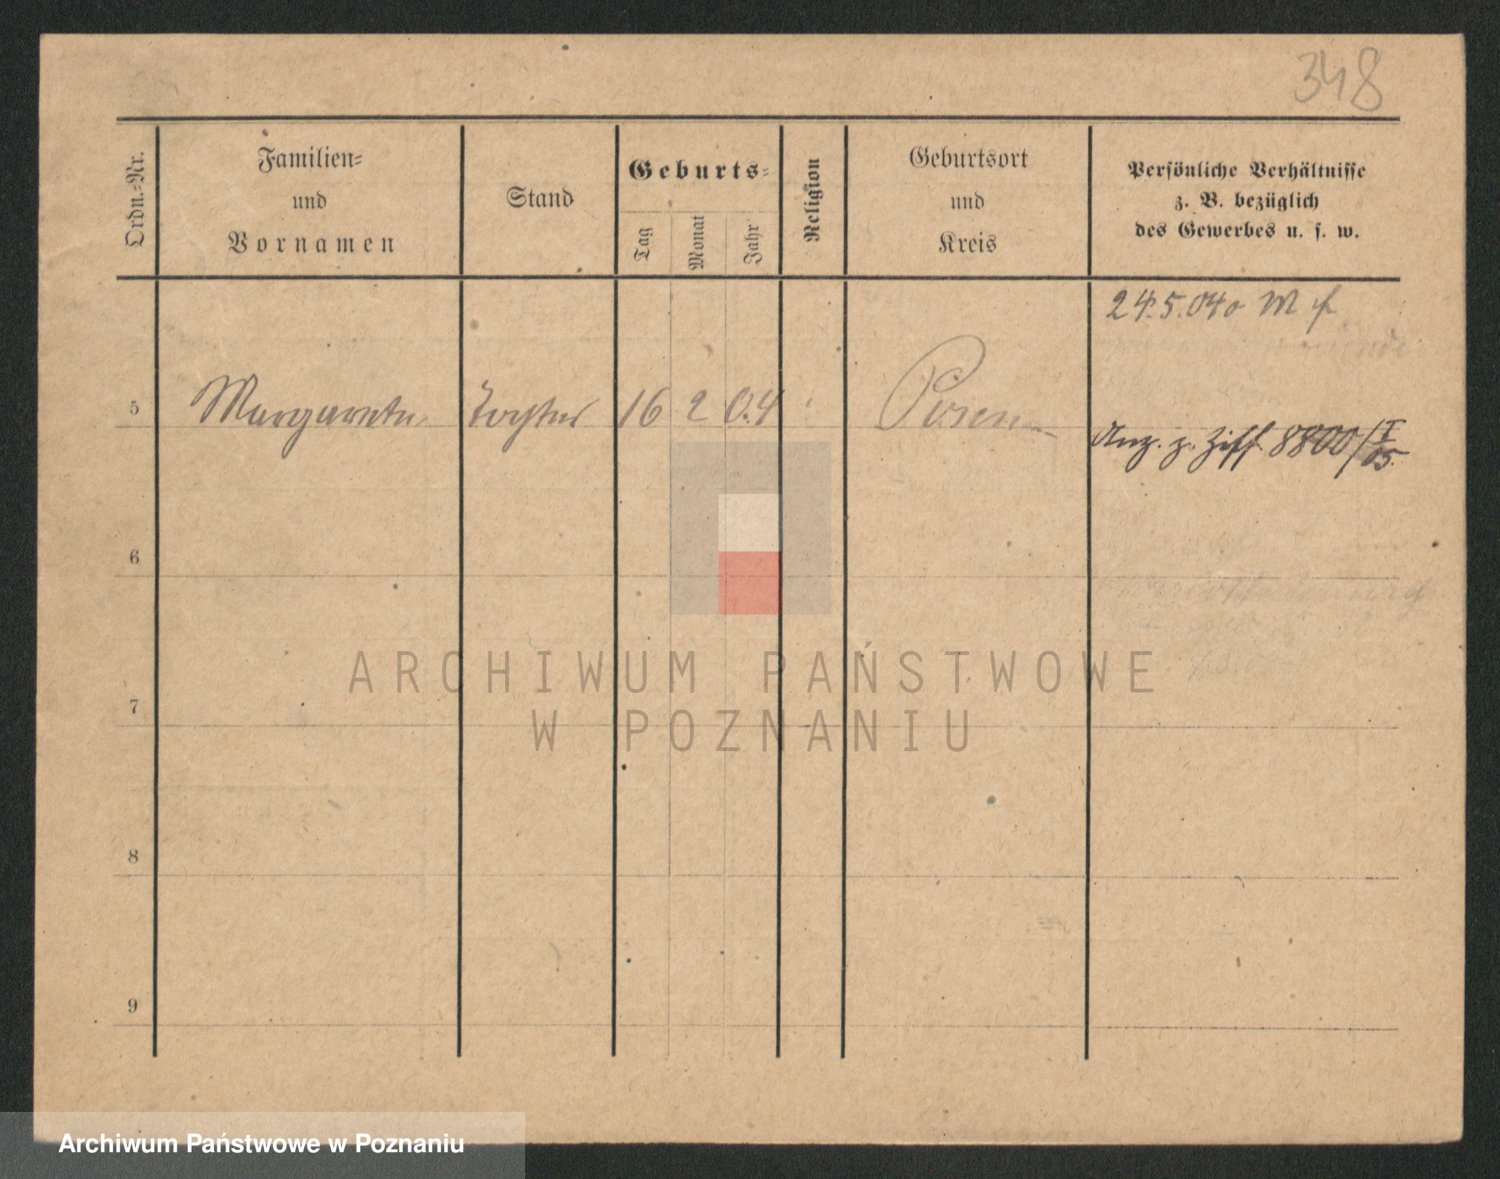 348
Ordn.-Nr.
Familien-
und
Vornamen
Stand
Geburts-
Tag
Monat
Jahr
Religion
Geburtsort
und
Kreis
Persönliche Verhältnisse
z. B. bezüglich
des Gewerbes u. s. w.
24.5.04
5 Margarete Tochter 16 2 04 Posen
Anz. z. Ziff. 8800/I 05.
6
7
8
9
ARCHIWUM PAŃSTWOWE
W POZNANIU
Archiwum Państwowe w Poznaniu